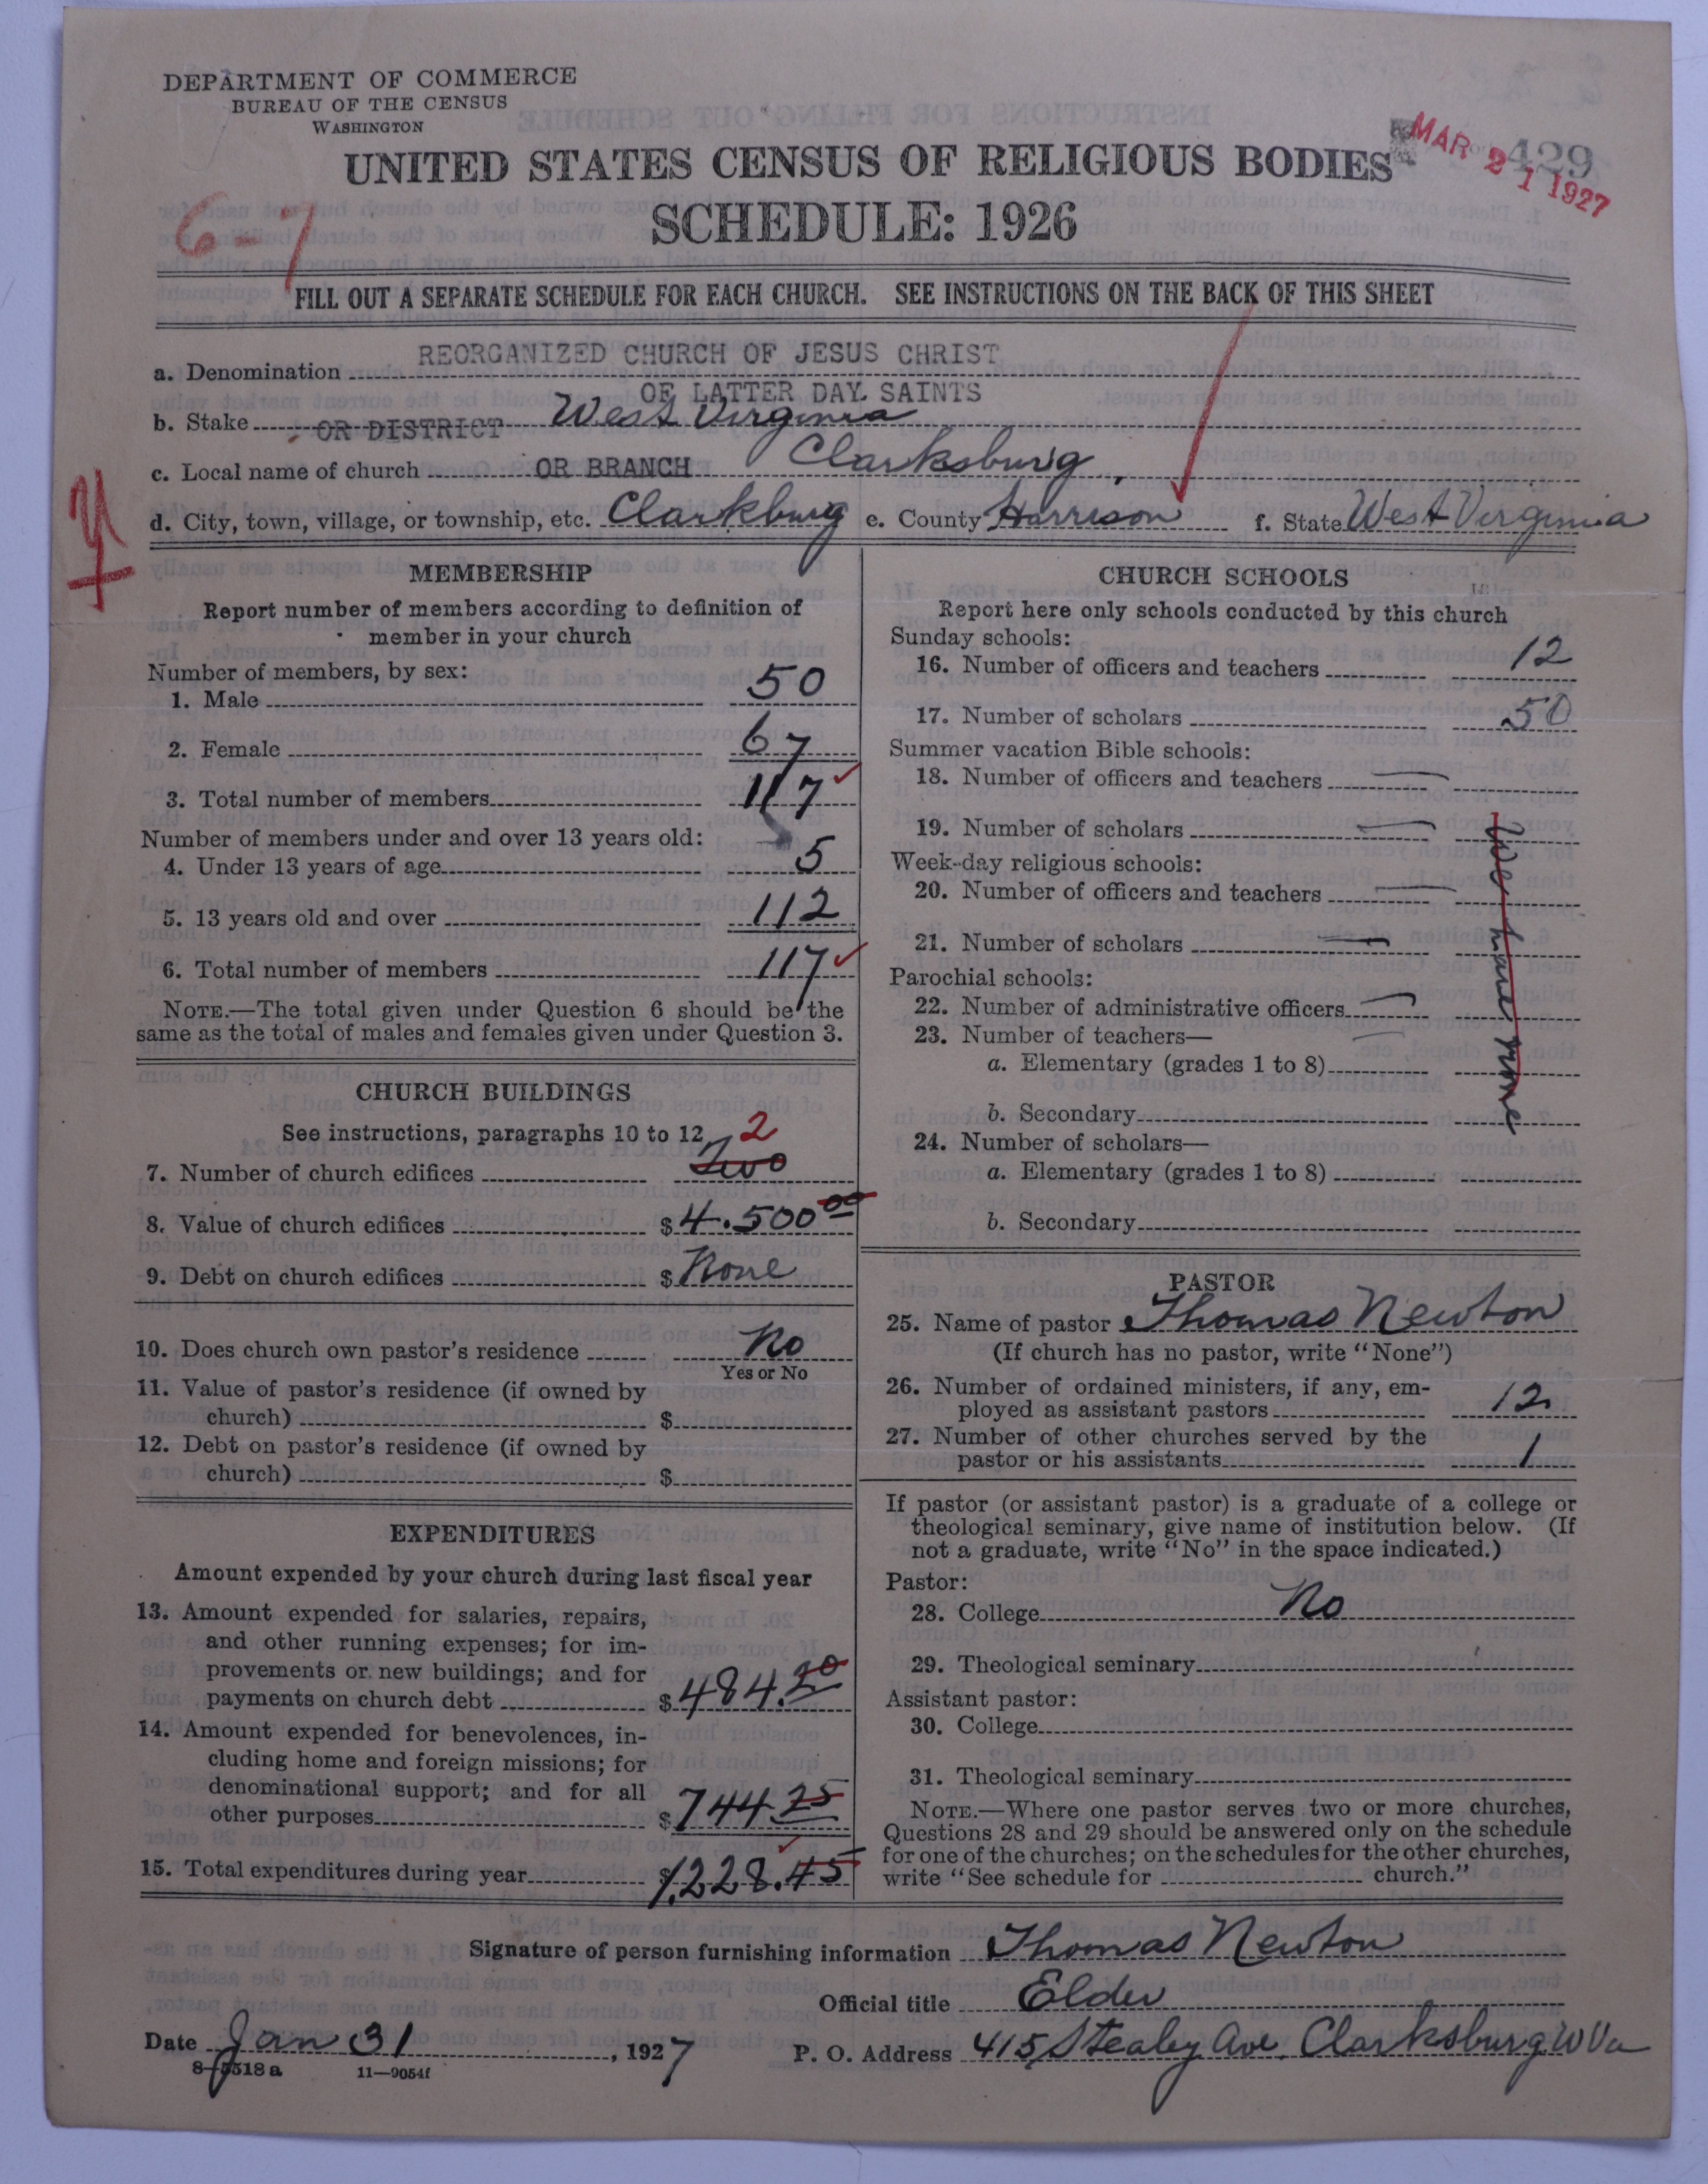 DEPARTMENT OF COMMERCE
BUREAU OF THE CENSUS
WASHINGTON
429
MAR 21 1927
UNITED STATES CENSUS OF RELIGIOUS BODIES
SCHEDULE: 1926
6-7
FILL OUT A SEPARATE SCHEDULE FOR EACH CHURCH. SEE INSTRUCTIONS ON THE BACK OF THIS SHEET
a. Denomination REORGANIZED CHURCH OF JESUS CHRIST
OF LATTER DAY SAINTS
b. Stake OR DISTRICT West Virginia
c. Local name of church OR BRANCH Clarksburg
d. City, town, village, or township, etc. Clarkburg e. County Harrison f. State West Virginia
MEMBERSHIP
Report number of members according to definition of
member in your church
Number of members, by sex:
1. Male 50
2. Female 67
3. Total number of members 117
Number of members under and over 13 years old:
4. Under 13 years of age 5
5. 13 years old and over 112
6. Total number of members 117
NOTE.—The total given under Question 6 should be the
same as the total of males and females given under Question 3.
CHURCH BUILDINGS
See instructions, paragraphs 10 to 12
2
7. Number of church edifices Two
8. Value of church edifices $ 4.500 00
9. Debt on church edifices $ None
10. Does church own pastor's residence No
Yes or No
11. Value of pastor's residence (if owned by
church) $
12. Debt on pastor's residence (if owned by
church) $
EXPENDITURES
Amount expended by your church during last fiscal year
13. Amount expended for salaries, repairs,
and other running expenses; for im-
provements or new buildings; and for
payments on church debt $ 484.20
14. Amount expended for benevolences, in-
cluding home and foreign missions; for
denominational support; and for all
other purposes $ 744.25
15. Total expenditures during year $ 1,228.45
CHURCH SCHOOLS
Report here only schools conducted by this church
Sunday schools:
16. Number of officers and teachers 12
17. Number of scholars 50
Summer vacation Bible schools:
18. Number of officers and teachers
19. Number of scholars
Week-day religious schools:
20. Number of officers and teachers
21. Number of scholars
Parochial schools:
22. Number of administrative officers
23. Number of teachers—
a. Elementary (grades 1 to 8)
b. Secondary
24. Number of scholars—
a. Elementary (grades 1 to 8)
b. Secondary
We have none
PASTOR
25. Name of pastor Thomas Newton
(If church has no pastor, write "None")
26. Number of ordained ministers, if any, em-
ployed as assistant pastors 12
27. Number of other churches served by the
pastor or his assistants 1
If pastor (or assistant pastor) is a graduate of a college or
theological seminary, give name of institution below. (If
not a graduate, write "No" in the space indicated.)
Pastor:
28. College No
29. Theological seminary
Assistant pastor:
30. College
31. Theological seminary
NOTE.—Where one pastor serves two or more churches,
Questions 28 and 29 should be answered only on the schedule
for one of the churches; on the schedules for the other churches,
write "See schedule for church."
Signature of person furnishing information Thomas Newton
Official title Elder
Date Jan 31, 1927 P. O. Address 415 Stealey Ave. Clarksburg W Va
8-5518 a 11—9054f